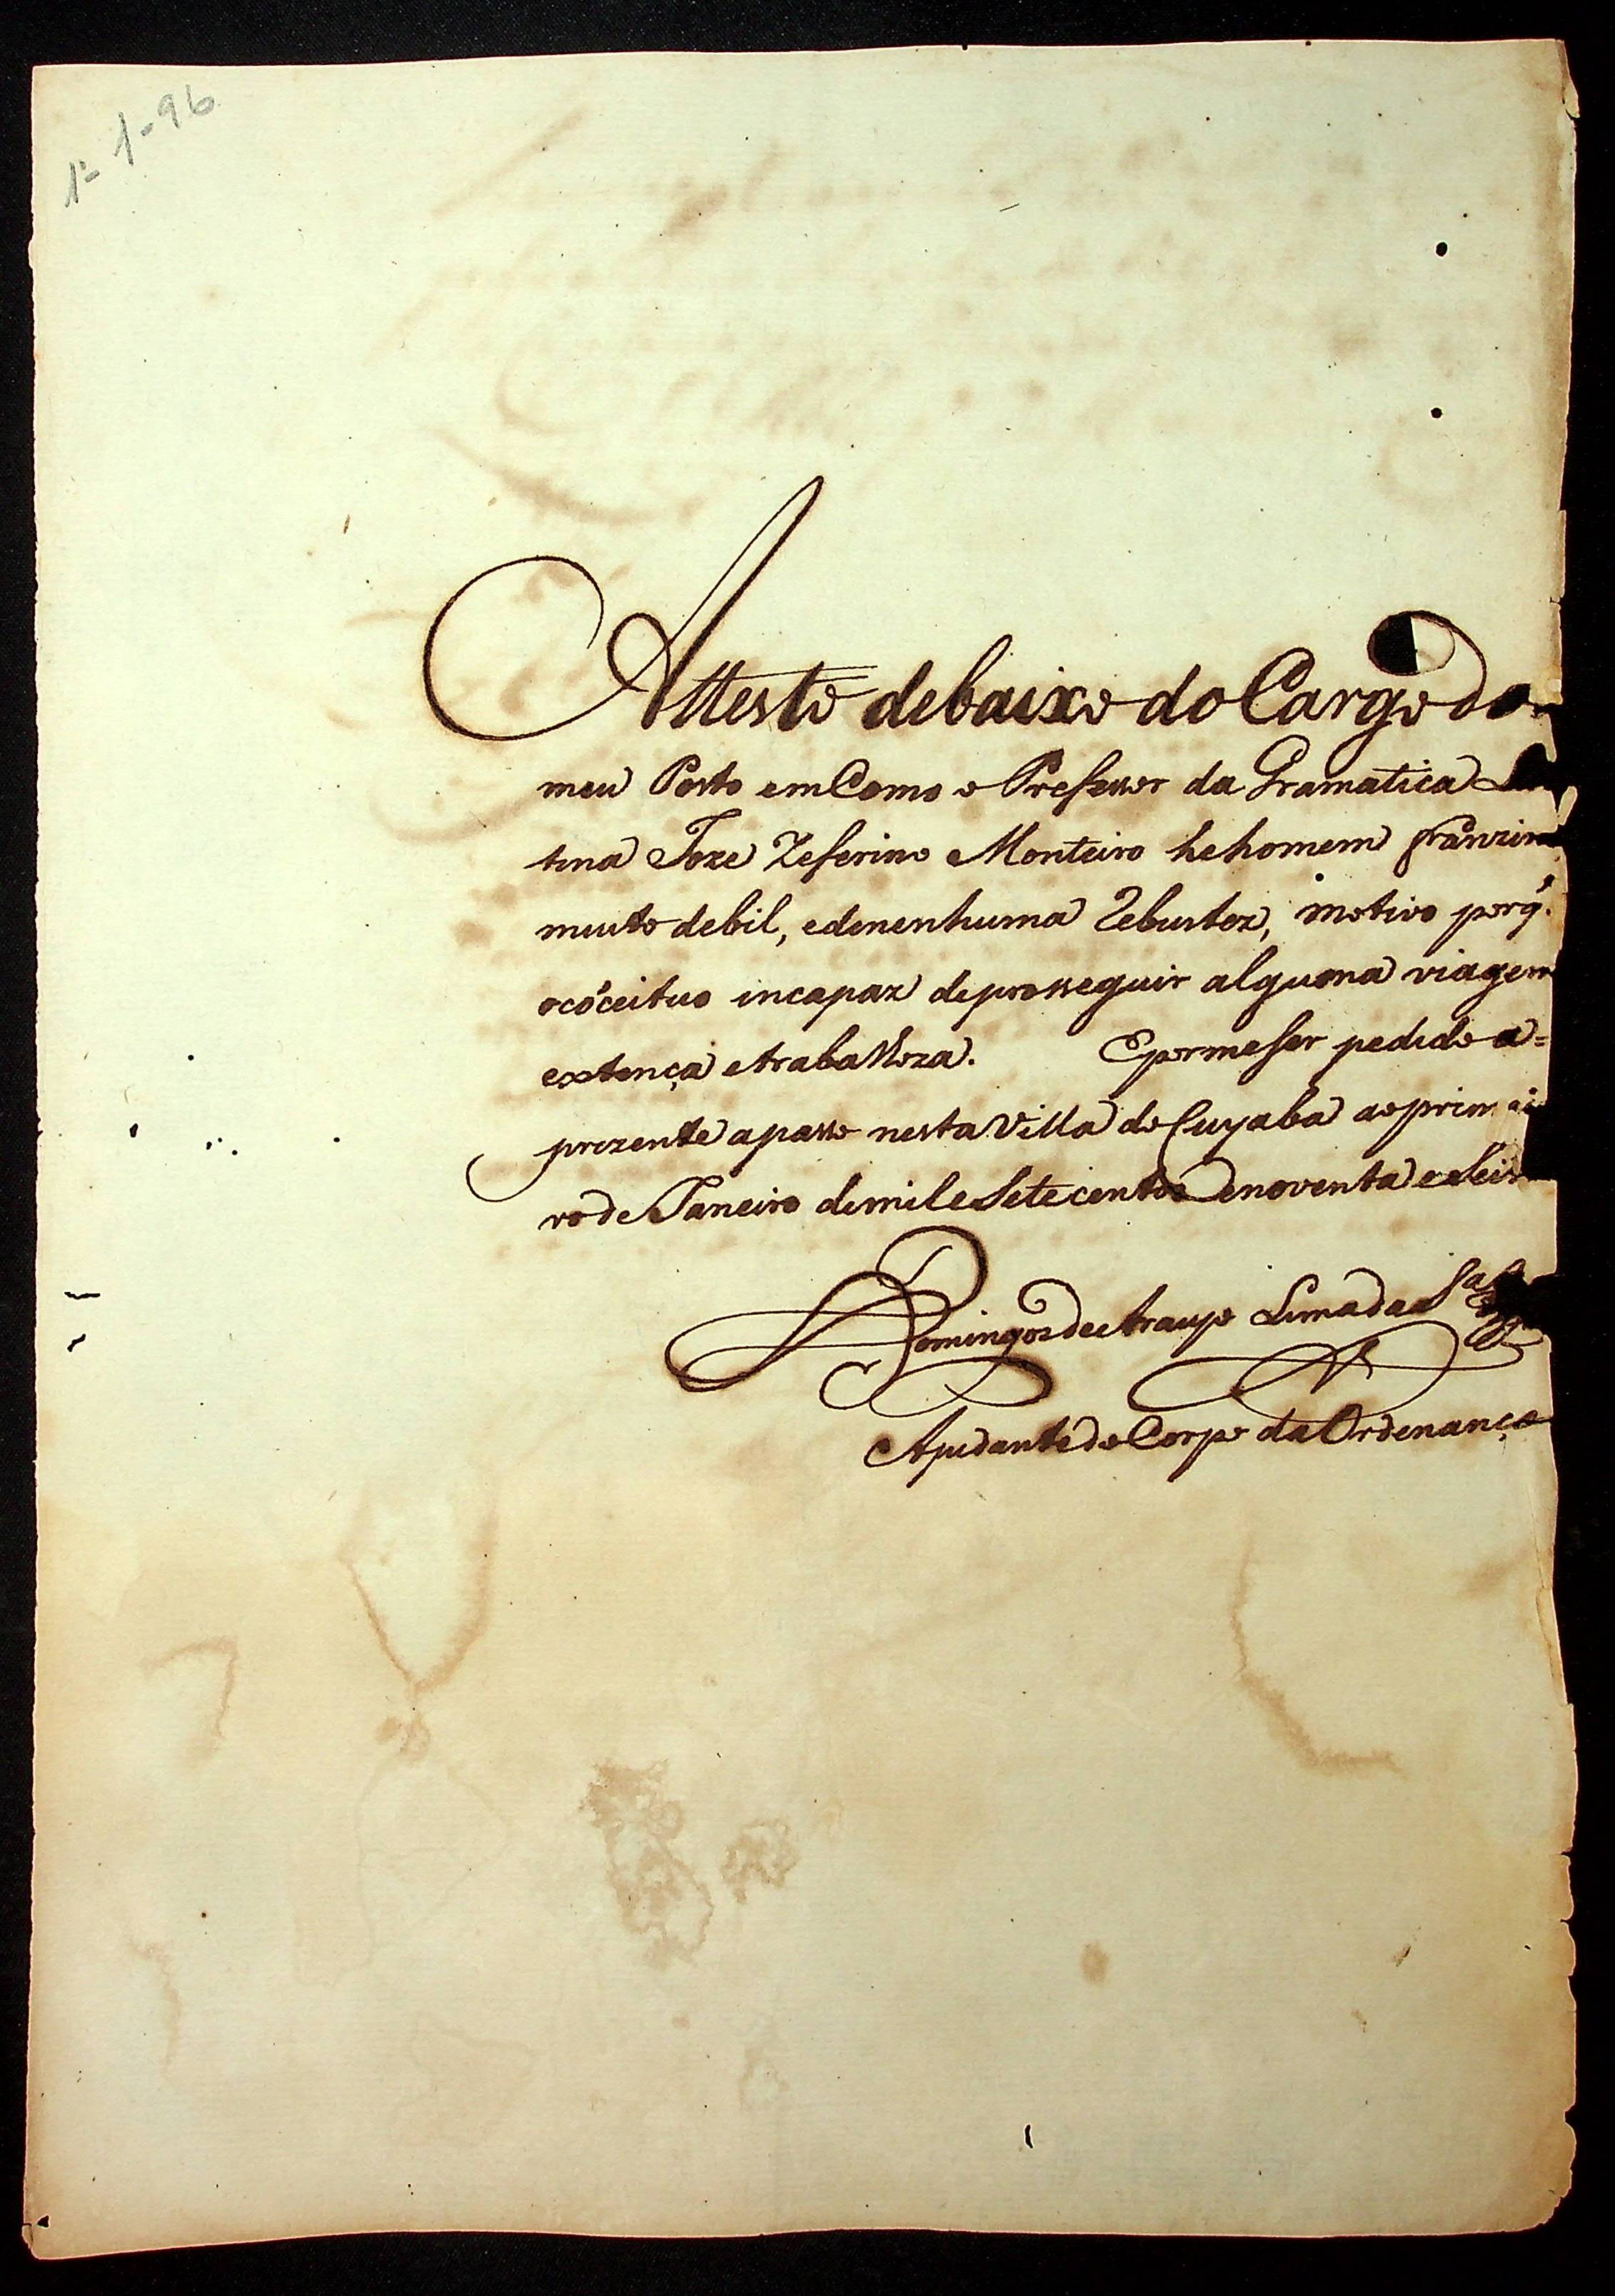 1º 1-96
Attesto debaixo do Cargo do
meu Posto em Como o Professor da Gramatica La
tina Joze Zeferino Monteiro he homem franzino
muito debil, e denenhuma Rebustez, motivo porq.
oCõceituo incapaz deprosseguir alguma viagem
extença etrabalhoza. Epormeser pedido a=
prezente apasso nesta Villa do Cuyaba aoprimei
ro de Janeiro demil e Setecentos enoventa e Seis
Domingos de Araujo Lima da
Ajudante do Corpo da Ordenança